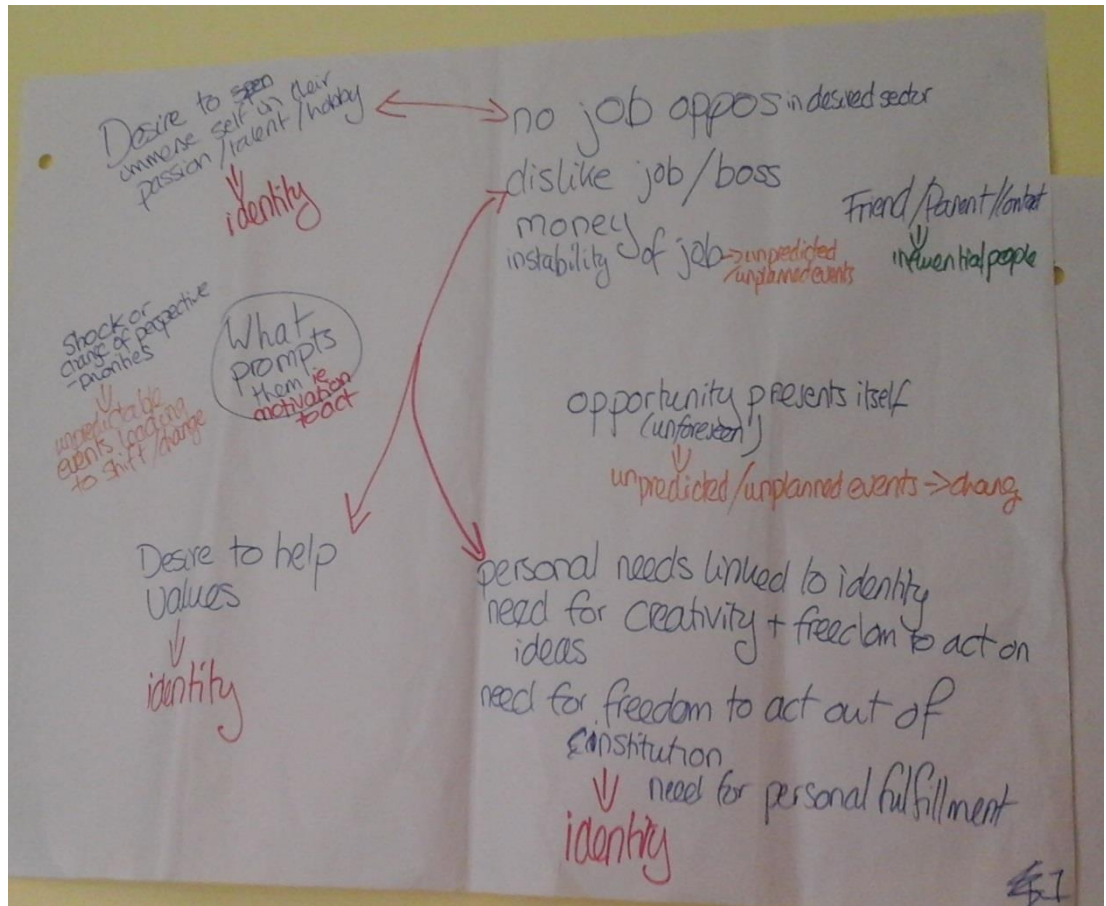 Desire to
immerse self in their
passion/talent/hobby
identity
no job oppos in desired sector
dislike job/boss
money
instability of job -> unpredicted
/unplanned events
Friend/Parent/Contact
influential people
Shock or
change of perspective
-priorities
unpredictable
events leading
to shift/change
What
prompts
them ie
motivation
to act
opportunity presents itself
(unforeseen)
unpredicted/unplanned events -> chang
Desire to help
values
identity
personal needs linked to identity
need for creativity + freedom to act on
ideas
need for freedom to act out of
institution
need for personal fulfillment
identity